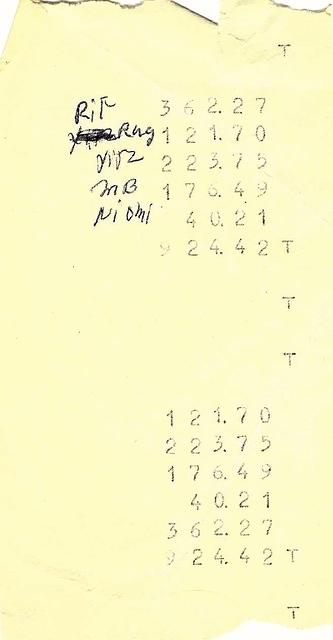 T
RiT 362.27
Rug 121.70
223.75
MB 176.49
Niomi 40.21
924.42 T
T
T
121.70
223.75
176.49
40.21
362.27
924.42 T
T